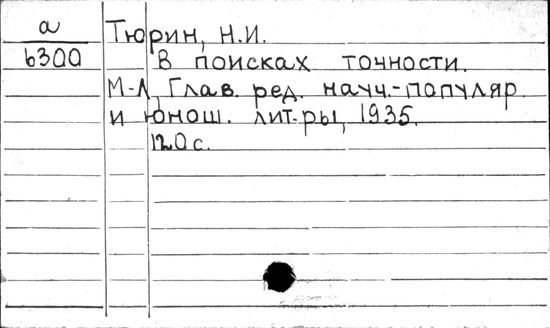 а
6300
Тюрин, Н.И.
В поисках точности.
М-Л, Глав. ред. научн.-популяр.
и юнош. лит-ры, 1935.
120 с.